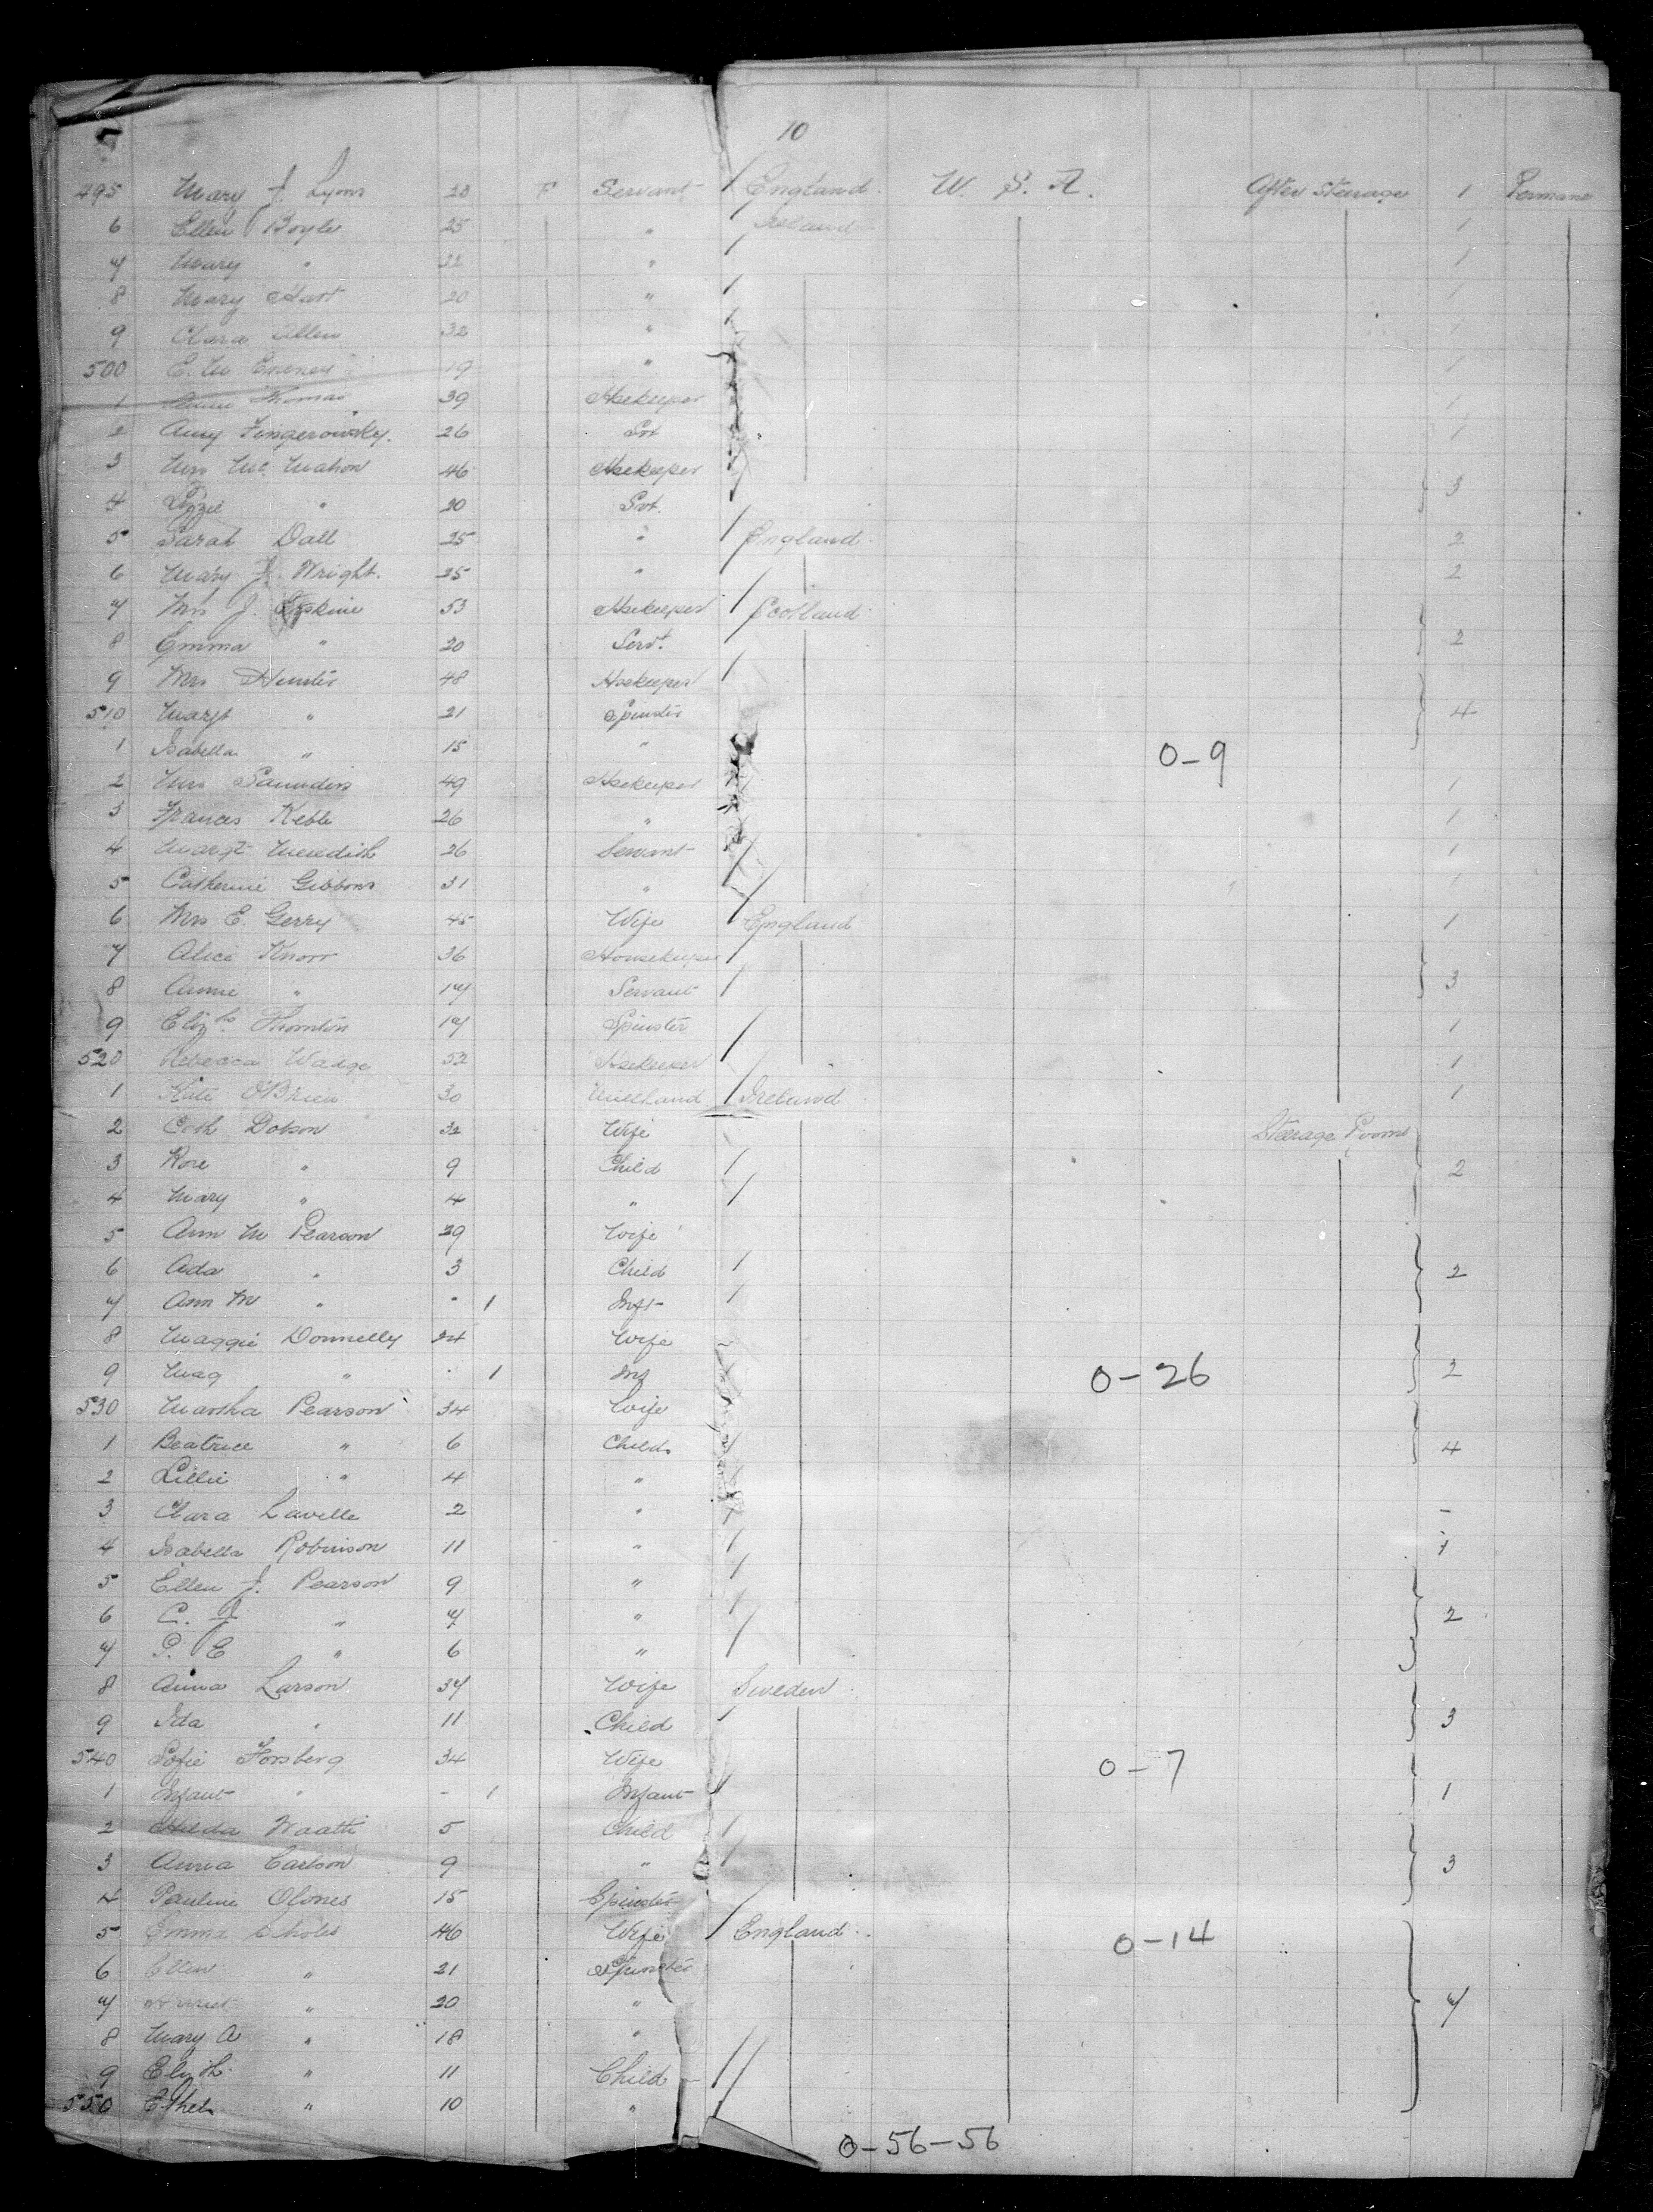 10
495 Mary J. Lyons 23 F Servant England. U. S. A. After Steerage 1 Permane
6 Ellen Boyle 25 " Ireland 1
7 Mary " 22 " 1
8 Mary Hart 20 " 1
9 Clara Allen 32 " 1
500 E. M 19 " 1
1 Annie Thomas 39 Hsekeeper 1
2 Amy Fingerowsky. 26 Svt 1
3 Mrs Mc Mahon 46 Hsekeeper 3
4 Lizzie " 20 Svt.
5 Sarah Dall 25 " England. 2
6 Mary J. Wright. 25 " 2
7 Mrs J. Erskine 53 Hsekeeper Scotland.
8 Emma " 20 Servt. 2
9 Mrs Hunter 48 Hsekeeper
510 Margt " 21 Spinster 4
1 Isabella " 15 " 0-9
2 Mrs Saunders 49 Hsekeeper 1
3 Frances Keble 26 " 1
4 Margt Meredith 26 Servant 1
5 Catherine Gibbons 31 " 1
6 Mrs E. Gerry 45 Wife England 1
7 Alice Knorr 36 Housekeeper
8 Annie " 17 Servant 3
9 Elizth Thornton 17 Spinster 1
520 Rebecca Wadge 52 Hsekeeper 1
1 Kate O'Brien 30 Millhand Ireland 1
2 Cath Dobson 32 Wife Steerage Rooms
3 Rose " 9 Child 2
4 Mary " 4 "
5 Ann M Pearson 29 Wife
6 Ada " 3 Child 2
7 Ann M " " 1 Inft
8 Maggie Donnelly 24 Wife
9 Mag " . 1 Inf 0-26 2
530 Martha Pearson 34 Wife
1 Beatrice " 6 Child 4
2 Lillie " 4 "
3 Clara Lavelle 2 " -
4 Isabella Robinson 11 " 1
5 Ellen J. Pearson 9 "
6 C. J " 7 " 2
7 P. E " 6 "
8 Anna Larson 37 Wife Sweden
9 Ida " 11 Child 3
540 Sofie Forsberg 34 Wife 0-7
1 Infant " - 1 Infant 1
2 Hilda Waatti 5 Child
3 Anna Carlson 9 " 3
4 Pauline Olones 15 Spinster
5 Emma Choles 46 Wife England. 0-14
6 Ellen " 21 Spinster
7 " 20 " 7
8 Mary A " 18 "
9 Elizth " 11 Child
550 Ethel " 10 "
0-56-56